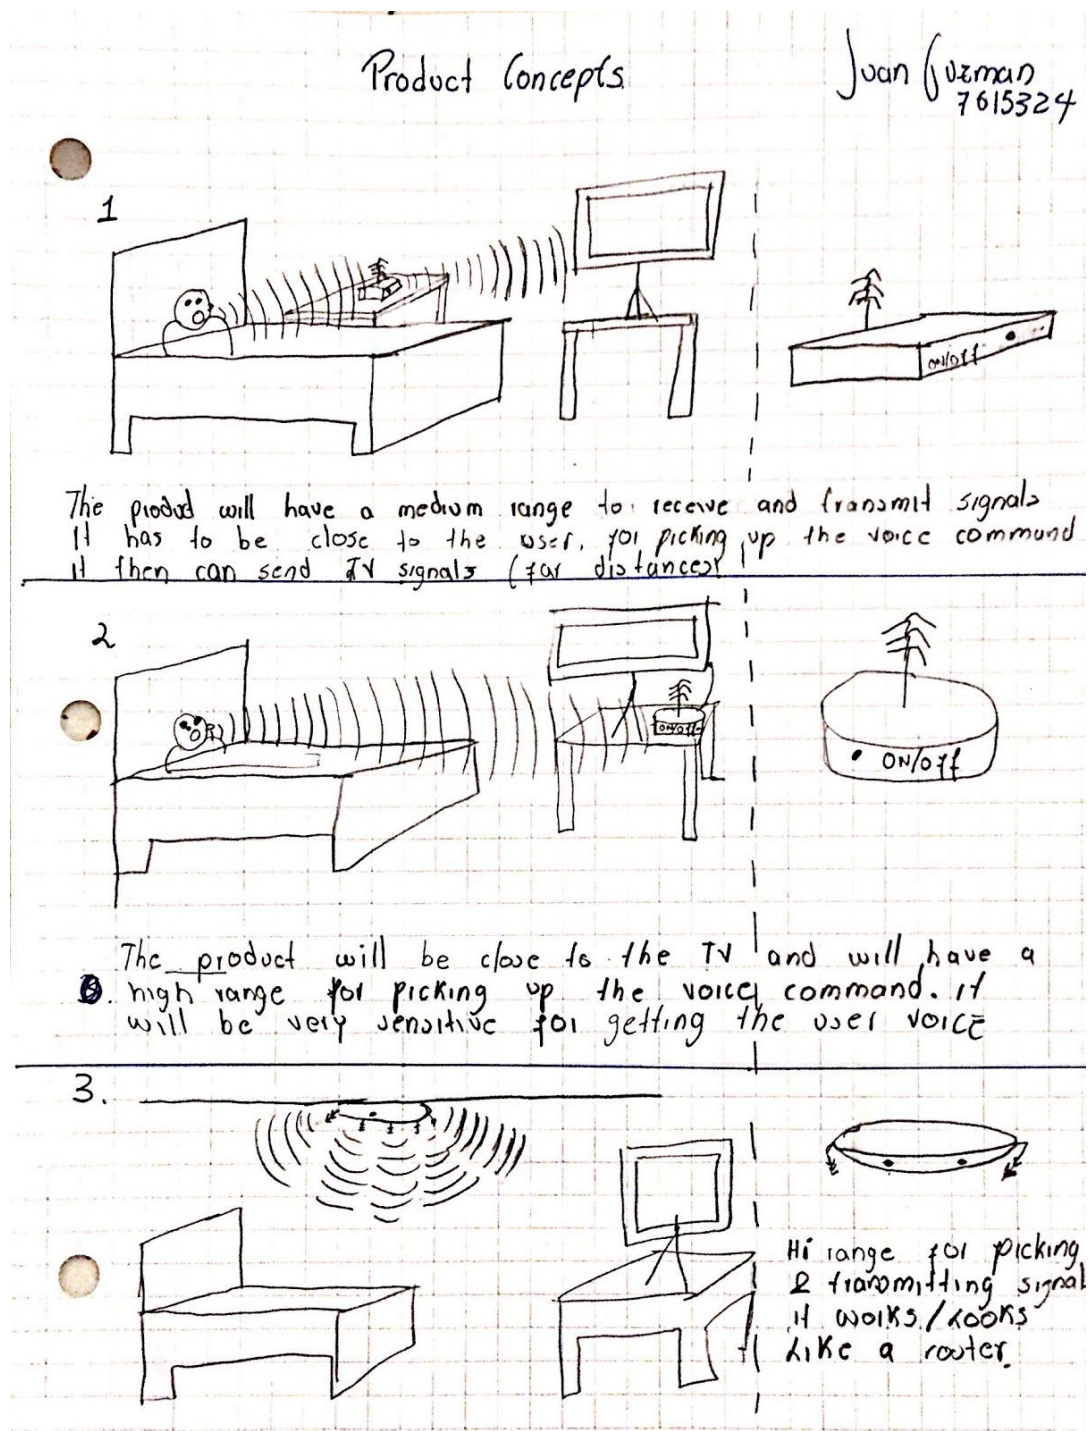 Product Concepts
Juan Guzman
7615324
1
ON/OFF
The product will have a medium range to receive and transmit signals
It has to be close to the user, for picking up the voice command
it then can send TV signals (far distances)
2
ON/OFF
ON/OFF
The product will be close to the TV and will have a
high range for picking up the voice command. it
will be very sensitive for getting the user voice
3.
Hi range for picking
& transmitting signal
it works/Looks
Like a router.